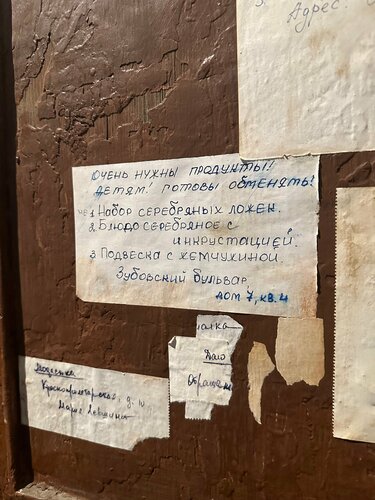 Адрес.
ОЧЕНЬ НУЖНЫ ПРОДУКТЫ!
ДЕТЯМ! ГОТОВЫ ОБМЕНЯТЬ!
1. НАБОР СЕРЕБРЯНЫХ ЛОЖЕК.
2. БЛЮДО СЕРЕБРЯНОЕ С
ИНКРУСТАЦИЕЙ.
3. ПОДВЕСКА С ЖЕМЧУЖИНОЙ.
ЗУБОВСКИЙ БУЛЬВАР,
ДОМ 7, КВ. 4
Даю
Обращ
Модистка
Краснопролетарская, д. 10
Мария Левкина